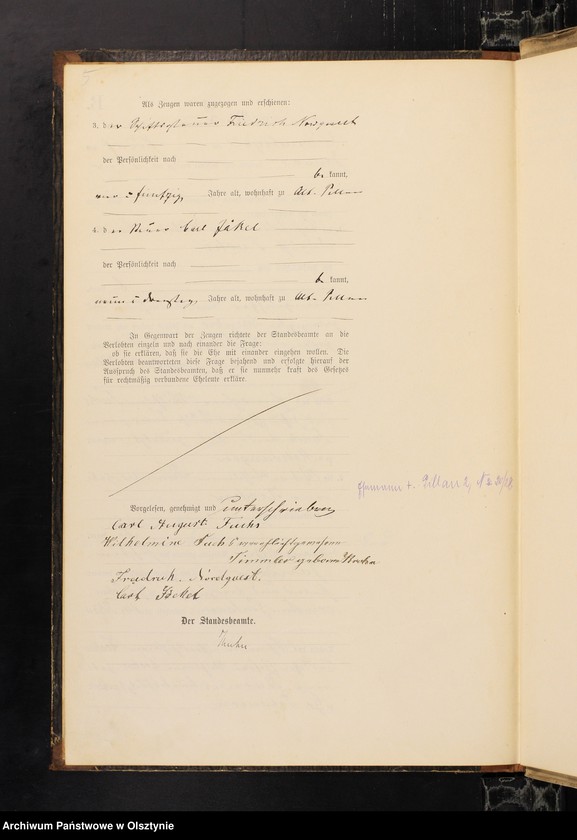 Als Zeugen waren zugezogen und erschienen:
3. der Friedrich Nordquest
der Persönlichkeit nach
be kannt,
vier u fünfzig Jahre alt, wohnhaft zu Alt-Pillau
4. der Carl Jäkel
der Persönlichkeit nach
be kannt,
neun u dreißig, Jahre alt, wohnhaft zu Alt-Pillau
In Gegenwart der Zeugen richtete der Standesbeamte an die
Verlobten einzeln und nach einander die Frage:
ob sie erklären, daß sie die Ehe mit einander eingehen wollen. Die
Verlobten beantworteten diese Frage bejahend und erfolgte hierauf der
Ausspruch des Standesbeamten, daß er sie nunmehr kraft des Gesetzes
für rechtmäßig verbundene Eheleute erkläre.
Ehemann +. Pillau 2, No
Vorgelesen, genehmigt und unterschrieben
Carl August Fuchs
Wilhelmine Fuchs
Simmler geborne
Friedrich Nordquest.
Carl Jäkel
Der Standesbeamte.
Archiwum Państwowe w Olsztynie